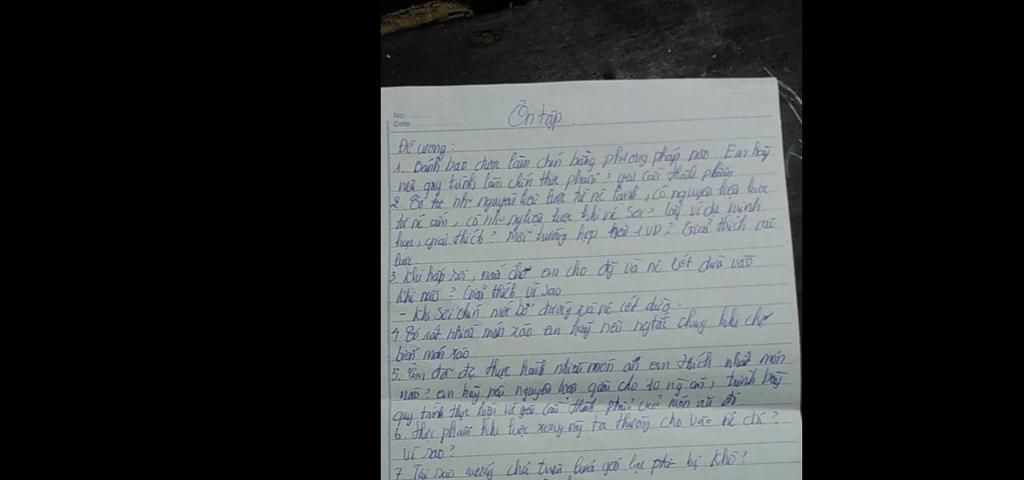 No.
Date
Ôn tập
Đề cương:
1. Bánh bao được làm chín bằng phương pháp nào. Em hãy
nêu quy trình làm chín thực phẩm, yêu cầu thành phẩm
2. nguyên liệu luộc từ nc lạnh, có nguyên liệu luộc
từ nc ấm, có luộc khi nc sôi? lấy ví dụ minh
họa, giải thích? Mỗi trường hợp 1 VD? Giải thích
luộc.
3. Khi hấp xôi, em cho đg và nc cốt dừa vào
khi nào? Giải thích vì sao
- Khi xôi chín mới bỏ đường và nc cốt dừa.
4. rất nhiều món xào em hãy nêu ngtắc chung khi chế
biến món xào
5. Em đã đc thực hành nhiều món ăn em thích nhất món
nào? em hãy nêu nguyên liệu cho 10 ng ăn, trình bày
quy trình thực hiện và yêu cầu thành phẩm của món ăn đó.
6. Thực phẩm khi luộc xong ta thường cho vào nc đá?
vì sao?
7. Tại sao nướng chả lại bị khô?